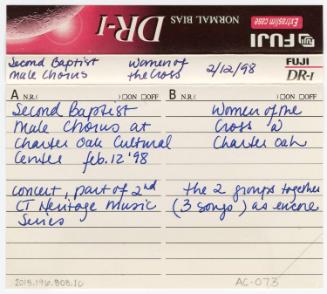 Extraslim case
NORMAL BIAS
FUJI
DR-I
Second Baptist Male Chorus
Women of the Cross
2/12/98
FUJI
DR-I
A N.R.( ) □ON □OFF
Second Baptist
Male Chorus at
Charter Oak Cultural
Center feb. 12 '98
concert, part of 2nd
CT Heritage Music
Series
B N.R.( ) □ON □OFF
Women of the
Cross @
Charter Oak
the 2 groups together
(3 songs) as encore
2015.196.808.10
AC-073